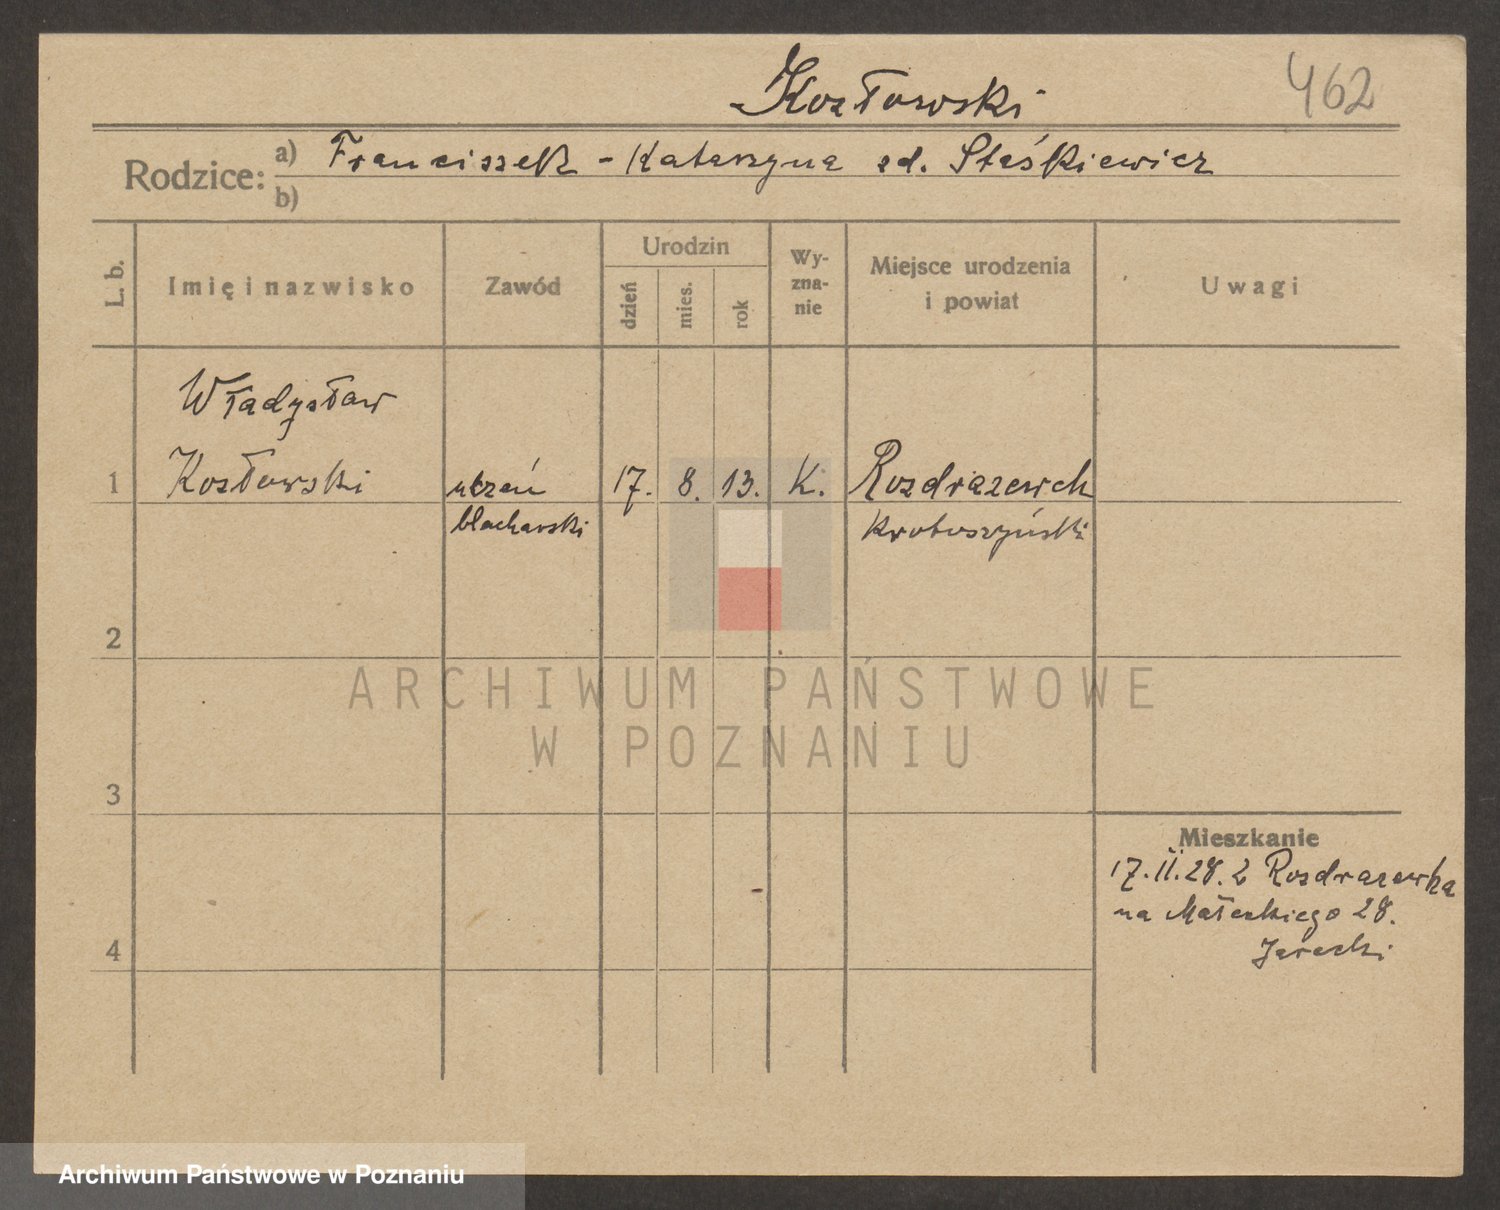 Kozłowski
462
Rodzice:
a) Franciszek - Katarzyna zd. Staśkiewicz
b)
L. b.
Imię i nazwisko
Zawód
Urodzin
dzień
mies.
rok
Wy-
zna-
nie
Miejsce urodzenia
i powiat
Uwagi
Władysław
1 Kozłowski uczeń 17. 8. 13. K. Rozdrażewek
blacharski Krotoszyński
2
ARCHIWUM PAŃSTWOWE
W POZNANIU
3
Mieszkanie
17.II.28. z Rozdrażewka
na Małeckiego 28.
4
Archiwum Państwowe w Poznaniu